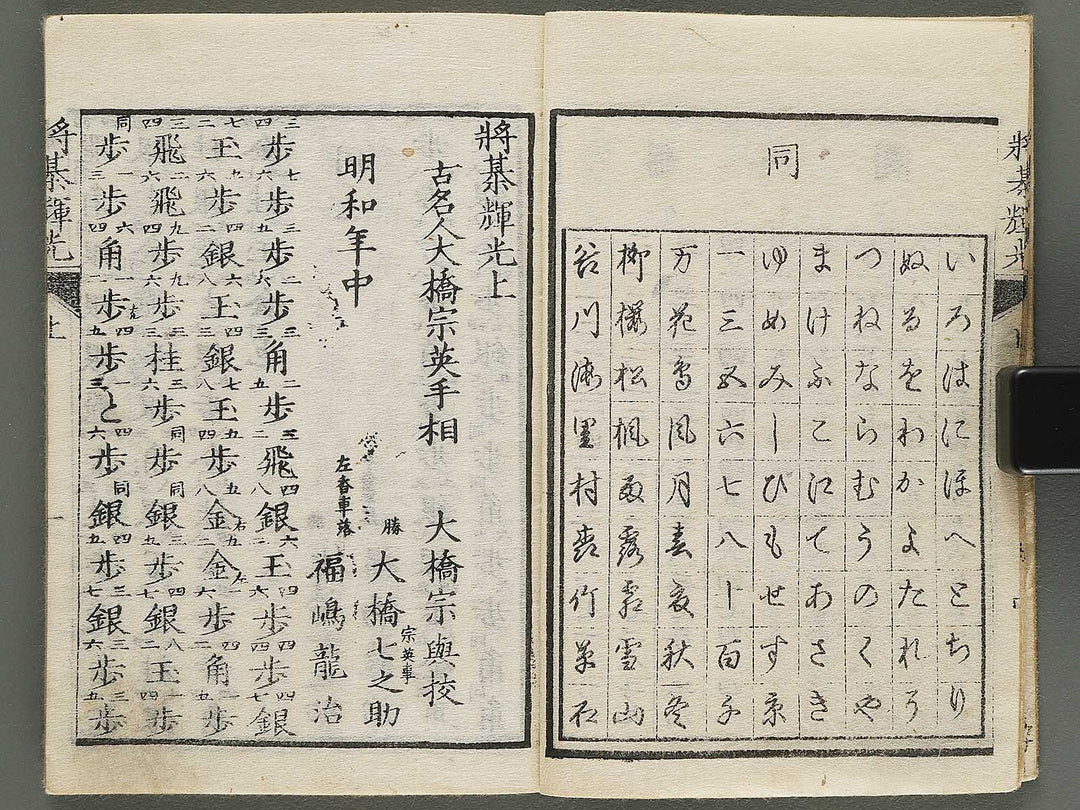 同
いろはにほへとちり
ぬるをわかよたれそ
つねならむうのくや
まけふこ江てあさき
ゆめみしひもせす京
一三五六七八十百千
万花鳥風月春夏秋冬
柳桜松楓雨露霜雪山
谷川海里村 竹草石
將棊輝光上
古名人大橋宗英手相
大橋宗與校
明和年中
勝 大橋七之助
宗英事
左香車落 福嶋龍治
三 歩 七六 歩 九 歩 二六 歩 三三 角 二五 歩 三二 飛 四八 銀 六一 王 四六 歩 四四 歩 四七 銀
七二 王 九六 歩 四二 銀 六八 王 四三 銀 七八 王 五四 歩 五八 金右 九二 金左 一六 歩 四二 角 一一 歩
三四 飛 二六 飛 九四 歩 九六 歩 三三 桂 三六 歩 同 歩 同 銀 三九 歩 四七 銀 八二 王 一四 歩
同 歩 一三 歩 六四 角 一一 歩 四九 歩 一三 と 四六 歩 同 銀 四五 歩 三七 銀 三六 歩 三五 歩
將棊輝光
上
一
將棊輝光